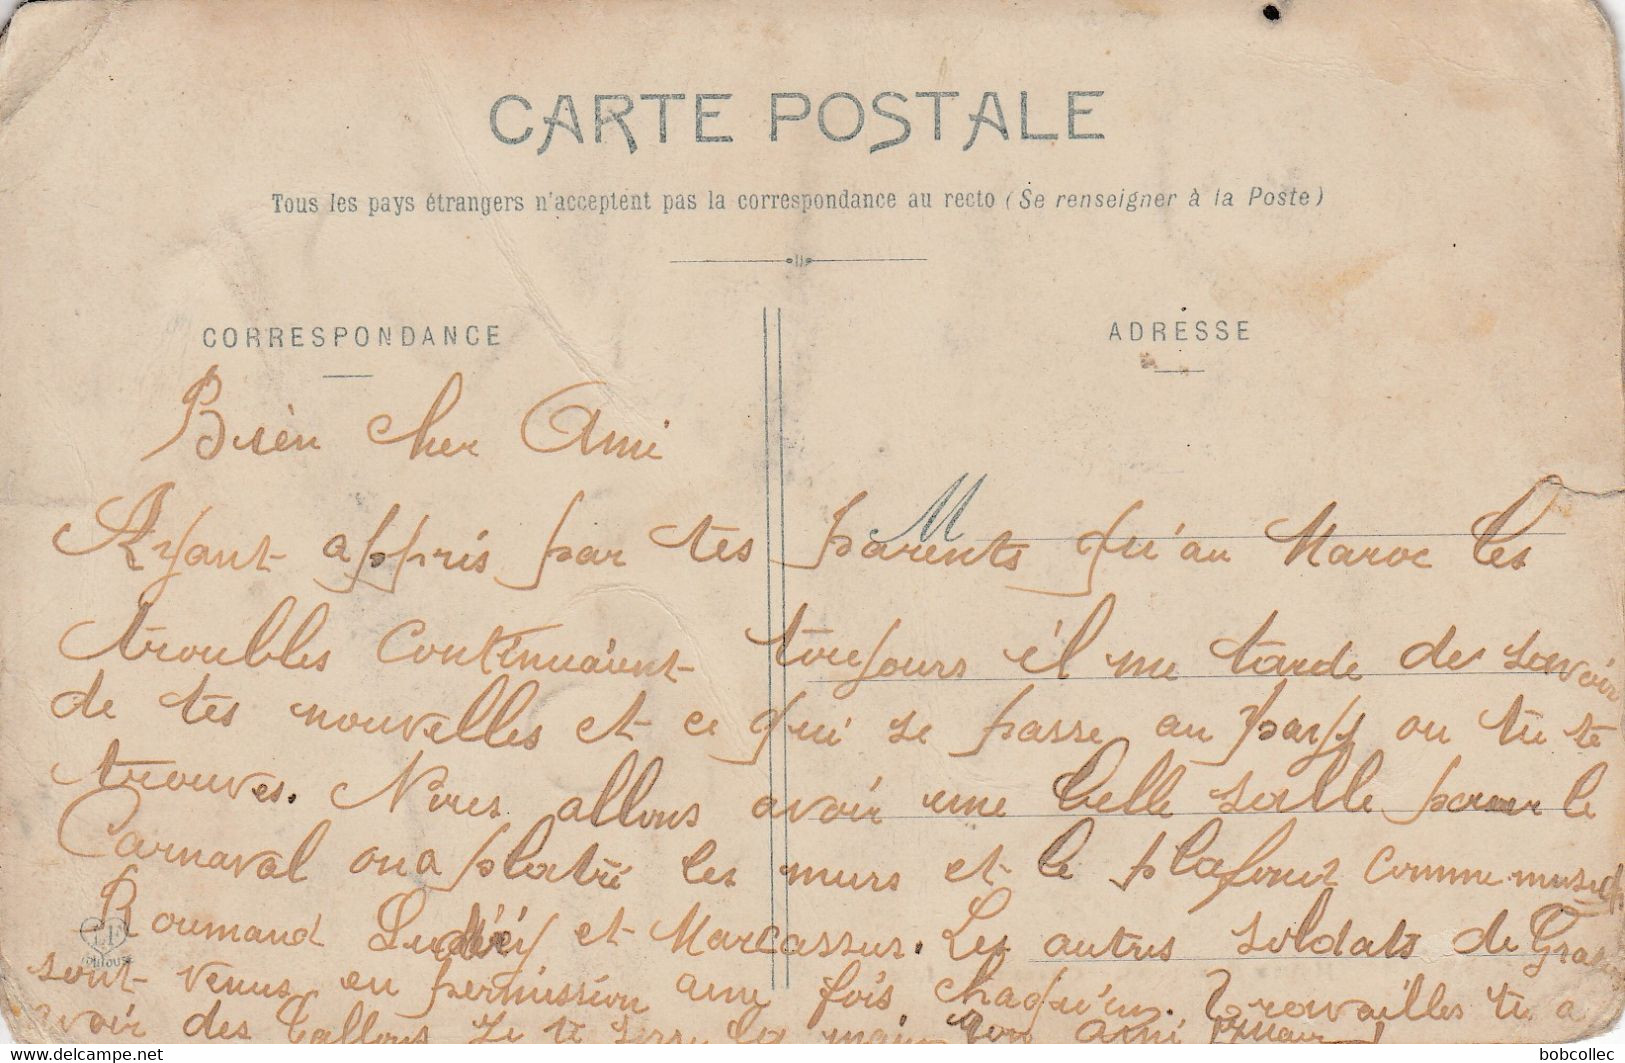 CARTE POSTALE
Tous les pays étrangers n'acceptent pas la correspondance au recto (Se renseigner à la Poste)
CORRESPONDANCE
ADRESSE
Bien cher Ami
M
Ayant appris par tes parents qu'au Maroc les
troubles continuaient toujours il me tarde de savoir
de tes nouvelles et ce qui se passe au pays ou tu te
trouves. Nous allons avoir une belle salle pour le
Carnaval on a platré les murs et le plafond comme
Roumand et Marcassus. Les autres soldats de
LF
TOULOUSE
sont venus en permission une fois chaqu'un. Travailles tu a
avoir des Je te serre la main Ton Ami
bobcollec